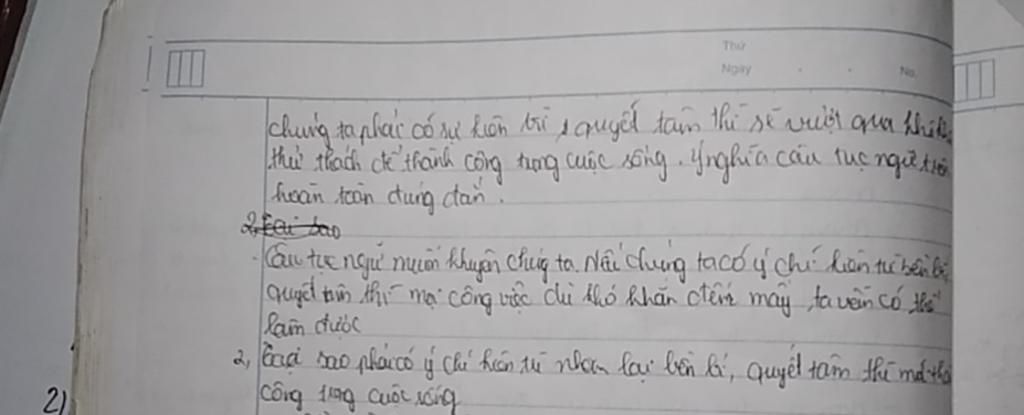 Thứ
Ngày No.
chúng ta phải có sự kiên trì, quyết tâm thì sẽ vượt qua
thử thách để thành công trong cuộc sống. Ý nghĩa câu tục ngữ trên
hoàn toàn đúng đắn.
2,
Câu tục ngữ muốn khuyên chúng ta. Nếu chúng ta có ý chí kiên trì bền bỉ
quyết tâm thì mọi công việc dù khó khăn đến mấy ta vẫn có thể
làm được
2, Tại sao phải có ý chí kiên trì nhẫn lại bền bỉ, quyết tâm thì mới
công trong cuộc sống
2)